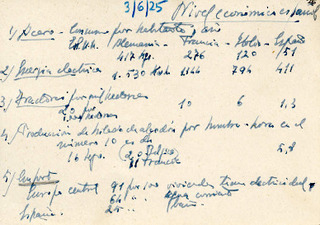 3/6/25
Nivel económico español
1) Acero - Consumo por habitante y año
EE.UU. Alemania - Francia - Italia - España
417 kg. 276 120 /51
2) Energía eléctrica
530 Kwh 1144 794 411
3) Tractores por mil hectáreas
10 6 1,3
4) Producción de hilado de algodón por hombre-hora en el
número 10 es de
16 kgs. Francia 5,8
5) Confort
Europa central 91 por 100 viviendas tienen electricidad
64 " " agua corriente
España. 25 " " baño.